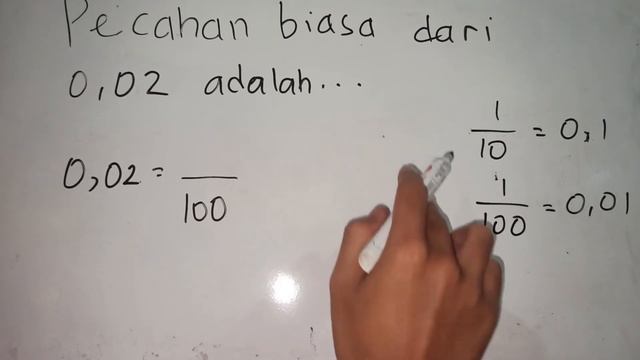 Pecahan biasa dari
0,02 adalah...
0,02 = —/100
1/10 = 0,1
1/100 = 0,01